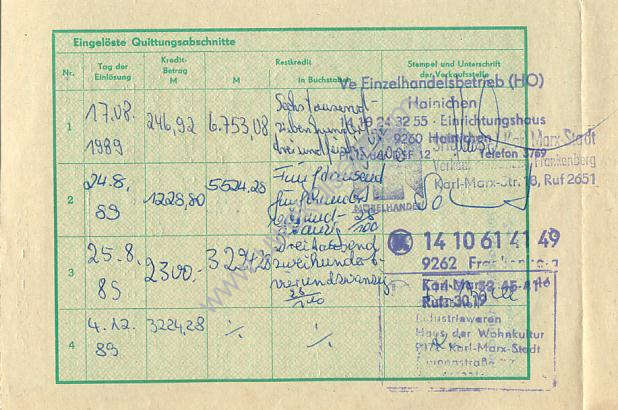 Eingelöste Quittungsabschnitte
Nr.
Tag der
Einlösung
Kredit-
Betrag
M
Restkredit
M
in Buchstaben
Stempel und Unterschrift
der Verkaufsstelle
Ve Einzelhandelsbetrieb (HO)
Hainichen
14 10 24 32 55 · Einrichtungshaus
9260 Hainichen
PSF 12 Telefon 3769
Karl-Marx-Stadt
Frankenberg
Karl-Marx-Str. 8, Ruf 2651
MÖBELHANDEL
1
17.08.
1989
246,92
6.753,08
Sechstausend-
siebenhundert-
dreiundfünfzig
2
24.8.
89
1228,80
5524,28
Fünftausend
fünfhundert
28/100
3
25.8.
89
2300,-
3224,28
Dreitausend
zweihundert-
vierundzwanzig
28/100
14 10 61 41 49
9262
Karl-Marx-
Ruf 3019
Industriewaren
Haus der Wohnkultur
Karl-Marx-Stadt
4
4.12.
89
3224,28